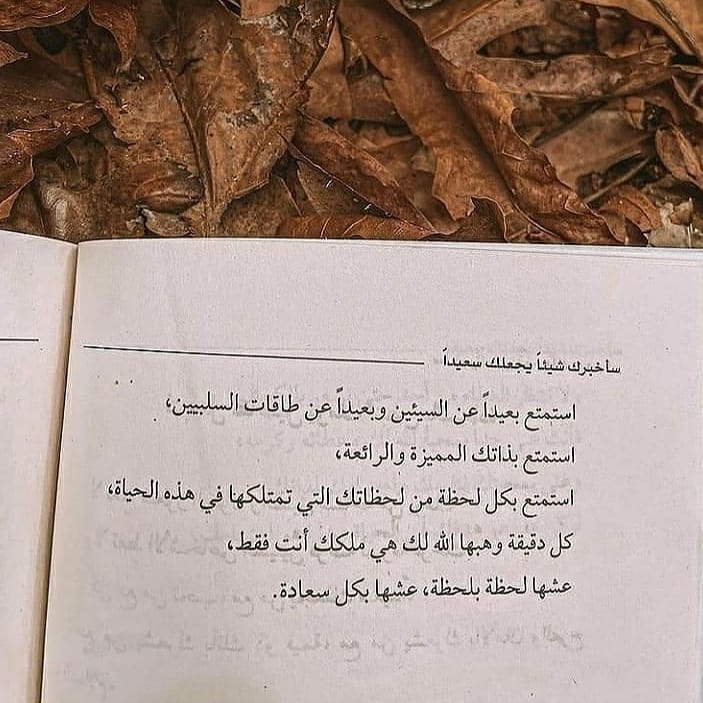 سأخبرك شيئاً يجعلك سعيداً
استمتع بعيداً عن السيئين وبعيداً عن طاقات السلبيين،
استمتع بذاتك المميزة والرائعة،
استمتع بكل لحظة من لحظاتك التي تمتلكها في هذه الحياة،
كل دقيقة وهبها الله لك هي ملكك أنت فقط،
عشها لحظة بلحظة، عشها بكل سعادة.